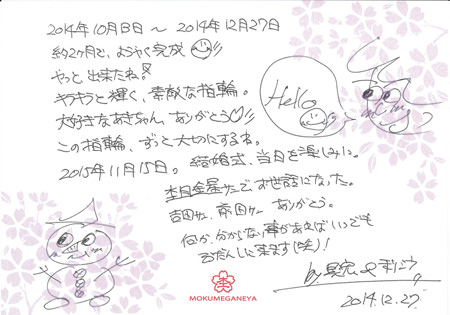 2014年10月13日 〜 2014年12月27日
約2ヶ月で、ようやく完成
やっと出来たね!
キラキラと輝く、素敵な指輪。
大好きなあきちゃん、ありがとう
この指輪、ずっと大切にするね。
2015年11月15日。結婚式、当日を楽しみに。
Hello
杢目金屋さんでお世話になった。
吉田さん、ありがとう。
何か、分からない事があればいつでも
そうだんしに来ます(笑)!
by
2014.12.27
MOKUMEGANEYA